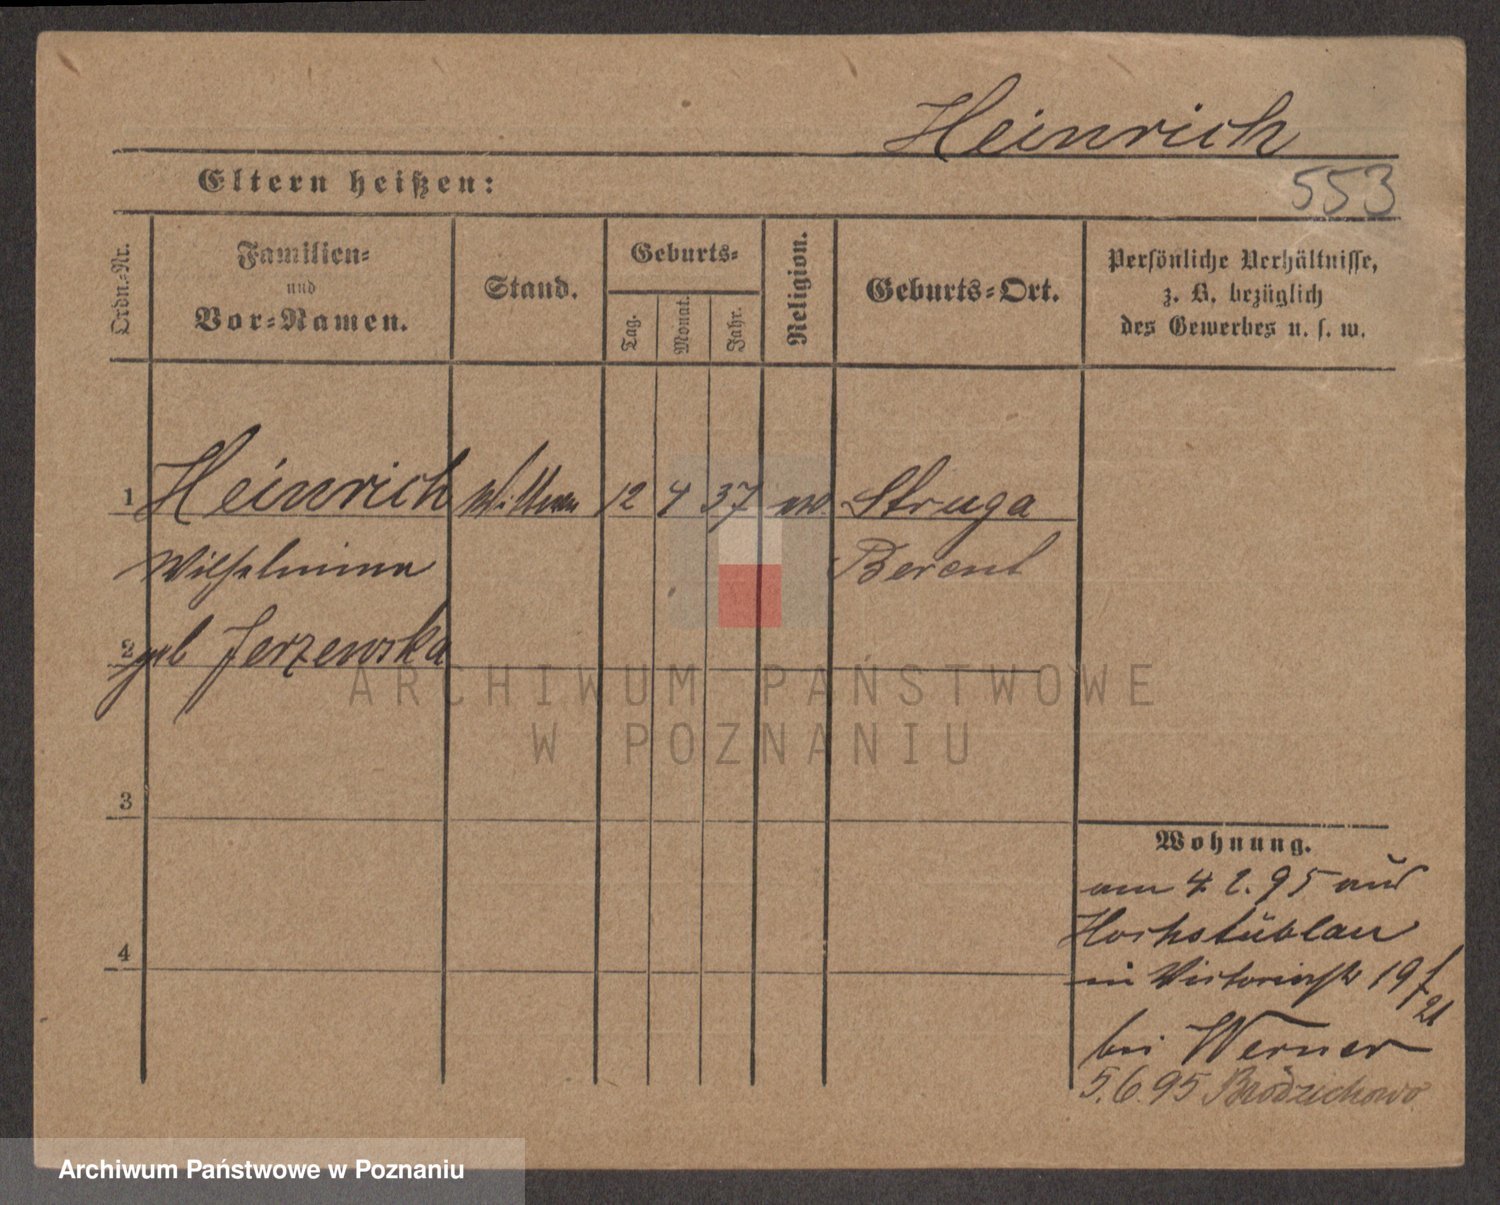 Heinrich
Eltern heißen:
553
Ordn.-Nr.
Familien-
und
Vor-Namen.
Stand.
Geburts-
Tag.
Monat.
Jahr.
Religion.
Geburts-Ort.
Persönliche Verhältnisse,
z. B. bezüglich
des Gewerbes u. s. w.
1 Heinrich 12 4 37 Struga
Wilhelmina Berent
2 geb Jerzewska
ARCHIWUM PAŃSTWOWE
W POZNANIU
3
Wohnung.
am 4. 2. 95 aus
Hochstüblau
4
in Victoriastr 19
21
bei Werner
5.6.95
Archiwum Państwowe w Poznaniu